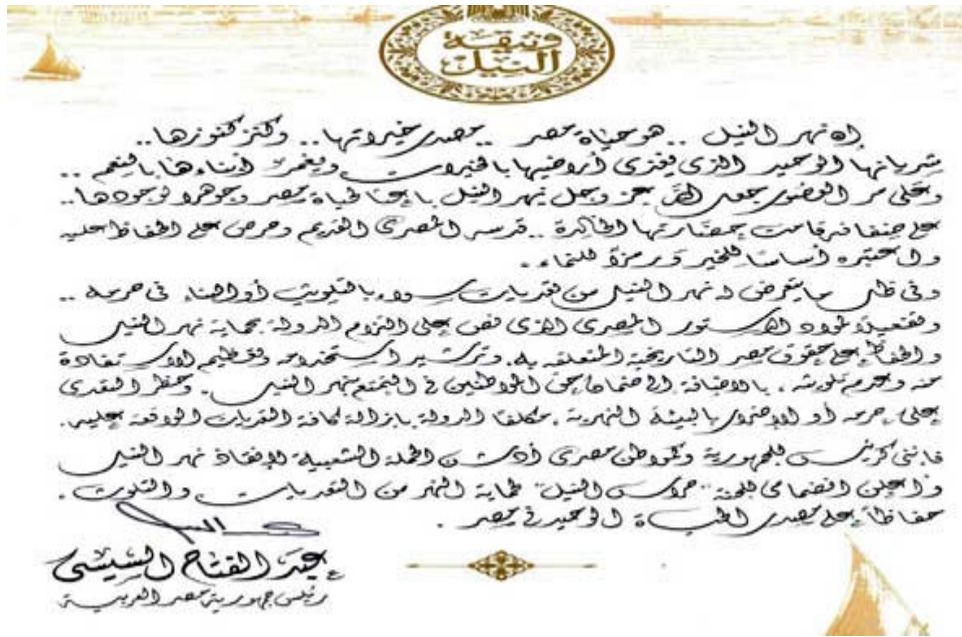 وثيقة
النيل
إن نهر النيل .. هو حياة مصر .. مصدر خيراتها .. وكنز كنوزها ..
شريانها الوحيد الذى يغذى أراضيها بالخيرات ويغمر أبناءها بالنعم ..
وعلى مر العصور جعل الله عز وجل نهر النيل باعثًا لحياة مصر وجوهرًا لوجودها ..
على ضفافه قامت حضارتها الخالدة .. قدسه المصرى القديم وحرص على الحفاظ عليه
واعتبره أساسًا للخير ورمزًا للنماء ..
وفى ظل ما يتعرض له نهر النيل من تعديات سواء بالتلويث أو البناء فى حرمه ..
وتفعيلًا لمواد الدستور المصرى الذى نص على التزام الدولة بحماية نهر النيل
والحفاظ على حقوق مصر التاريخية المتعلقة به، وترشيد استخدامه وتعظيم الاستفادة
منه وعدم تلويثه ، بالاضافة إلى ضمان حق المواطنين فى التمتع بنهر النيل ، وحظر التعدى
على حرمه أو الإضرار بالبيئة النهرية ، مكلفًا الدولة بإزالة كافة التعديات الواقعة عليه.
فإننى كرئيس للجمهورية وكمواطن مصرى أدشن الحملة الشعبية لإنقاذ نهر النيل
وأعلن انضمامى للجنة "حراس النيل" لحماية النهر من التعديات والتلوث .
حفاظًا على مصدر الحياة الوحيد فى مصر .
عبد الفتاح السيسى
رئيس جمهورية مصر العربية